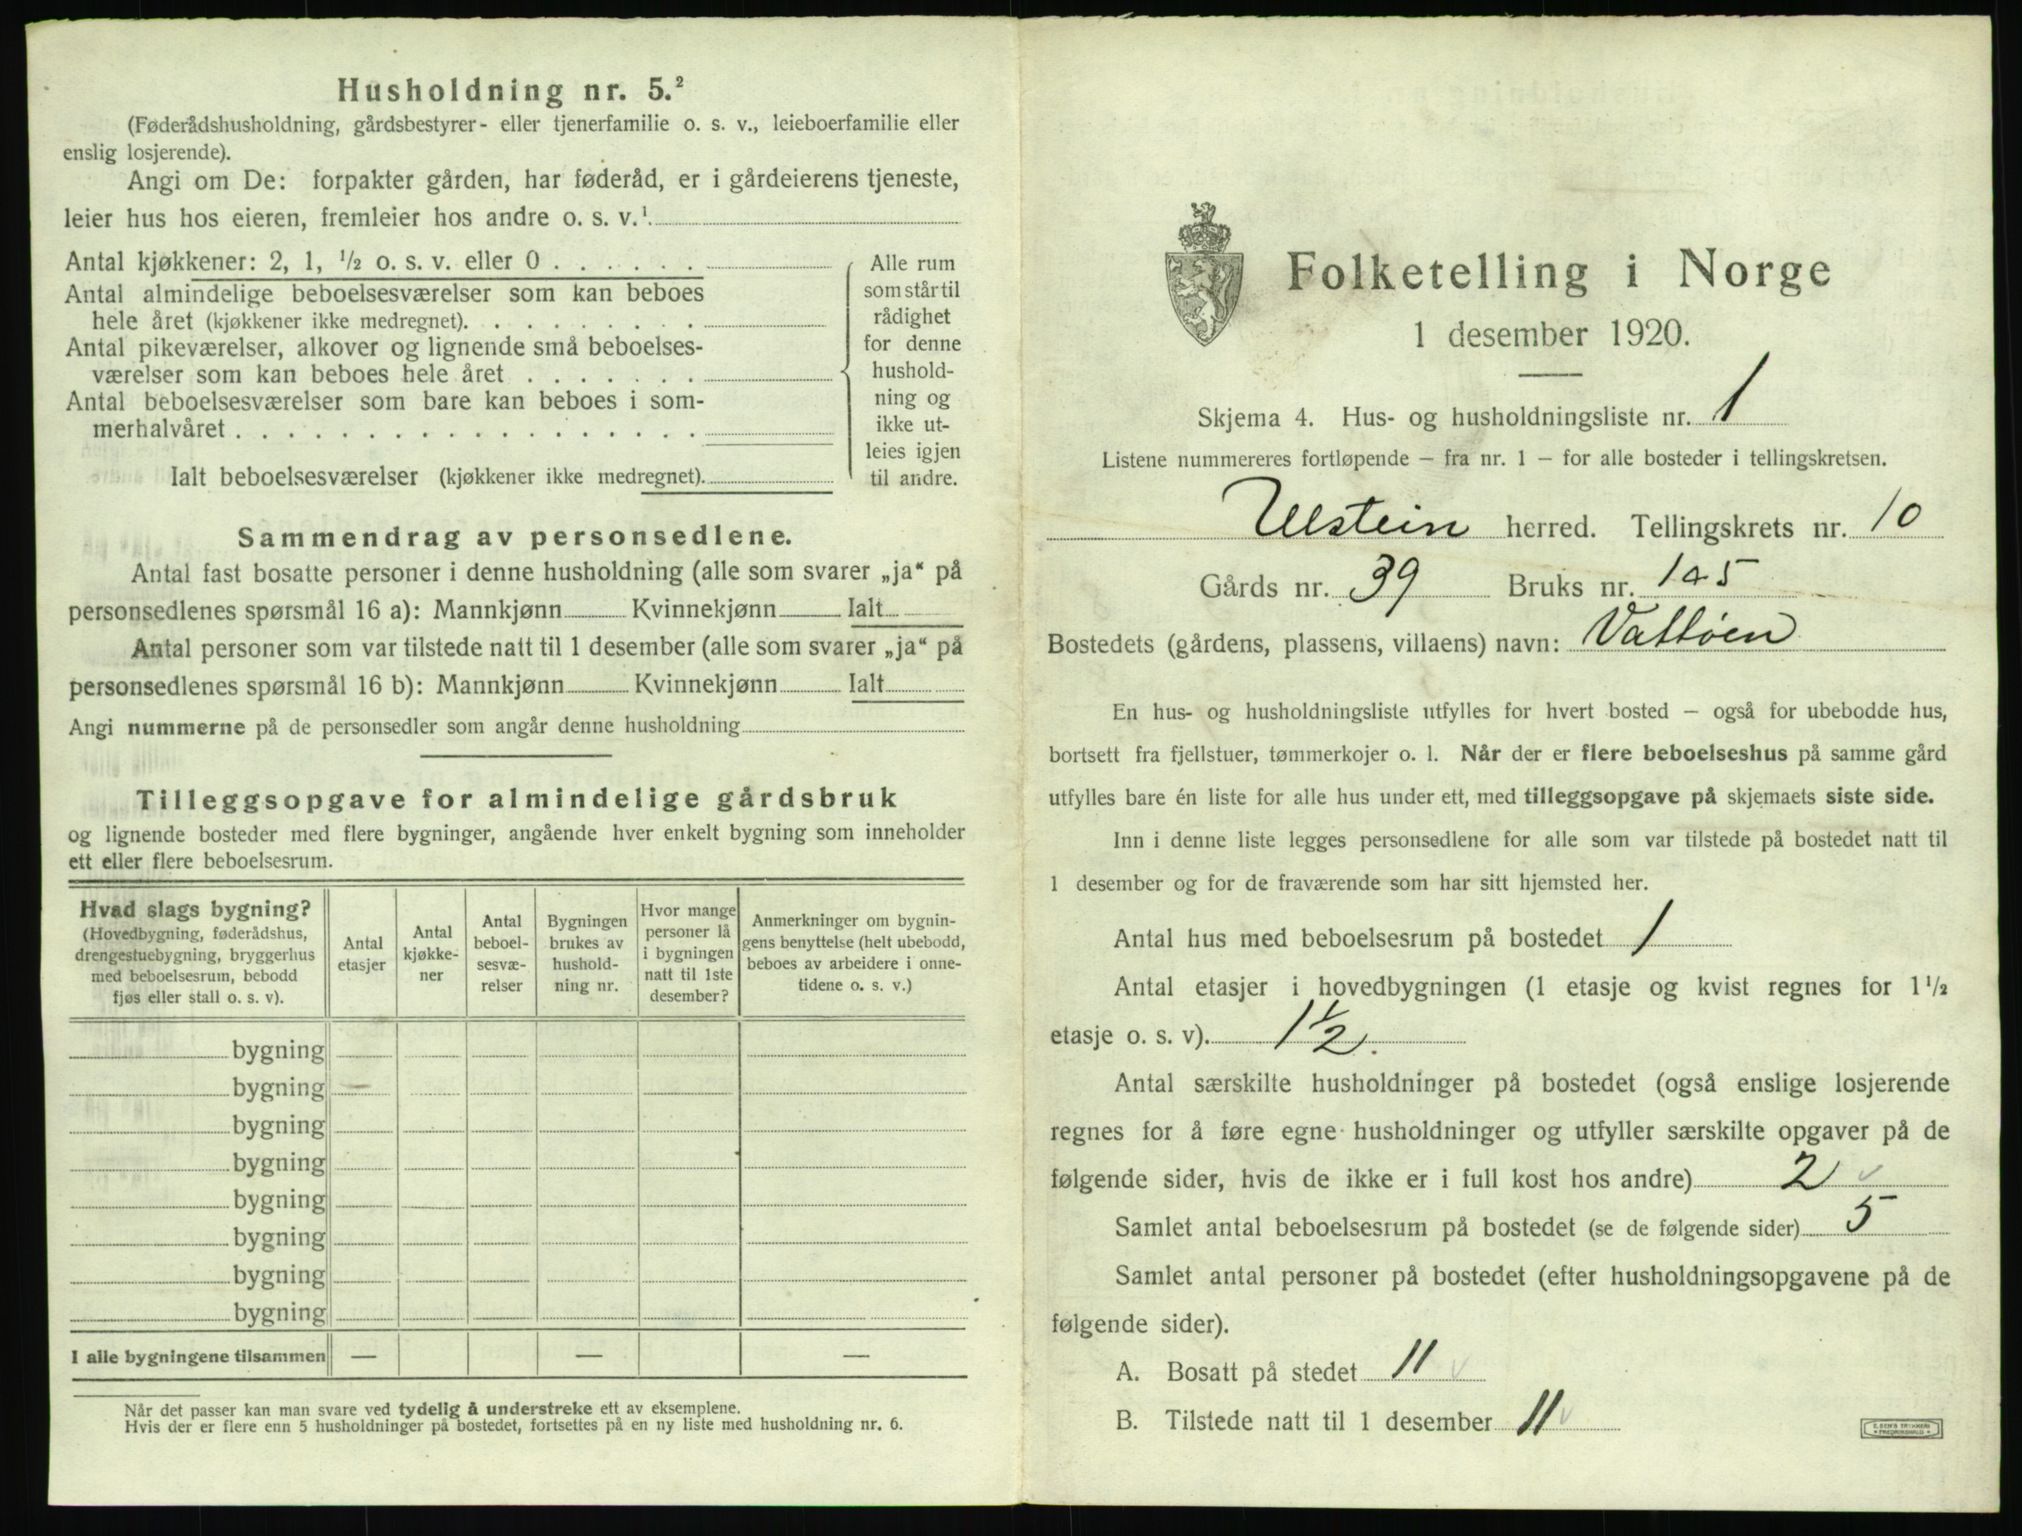 Husholdning nr. 5.²
(Føderådshusholdning, gårdsbestyrer- eller tjenerfamilie o. s. v., leieboerfamilie eller
enslig losjerende).
Angi om De: forpakter gården, har føderåd, er i gårdeierens tjeneste,
leier hus hos eieren, fremleier hos andre o. s. v.¹
Antal kjøkkener: 2, 1, ½ o. s. v. eller 0
Antal almindelige beboelsesværelser som kan beboes
hele året (kjøkkener ikke medregnet).
Antal pikeværelser, alkover og lignende små beboelses-
værelser som kan beboes hele året
Antal beboelsesværelser som bare kan beboes i som-
merhalvåret
Ialt beboelsesværelser (kjøkkener ikke medregnet).
Alle rum
som står til
rådighet
for denne
hushold-
ning og
ikke ut-
leies igjen
til andre.
Sammendrag av personsedlene.
Antal fast bosatte personer i denne husholdning (alle som svarer „ja“ på
personsedlenes spørsmål 16 a): Mannkjønn Kvinnekjønn Ialt
Antal personer som var tilstede natt til 1 desember (alle som svarer „ja“ på
personsedlenes spørsmål 16 b): Mannkjønn Kvinnekjønn Ialt
Angi nummerne på de personsedler som angår denne husholdning
Tilleggsopgave for almindelige gårdsbruk
og lignende bosteder med flere bygninger, angående hver enkelt bygning som inneholder
ett eller flere beboelsesrum.
Hvad slags bygning?
(Hovedbygning, føderådshus,
drengestuebygning, bryggerhus
med beboelsesrum, bebodd
fjøs eller stall o. s. v).
Antal
etasjer
Antal
kjøkke-
ner
Antal
beboel-
sesvæ-
relser
Bygningen
brukes av
hushold-
ning nr.
Hvor mange
personer lå
i bygningen
natt til 1ste
desember?
Anmerkninger om bygnin-
gens benyttelse (helt ubebodd,
beboes av arbeidere i onne-
tidene o. s. v.)
bygning
bygning
bygning
bygning
bygning
bygning
bygning
bygning
I alle bygningene tilsammen — — —
Når det passer kan man svare ved tydelig å understreke ett av eksemplene.
Hvis der er flere enn 5 husholdninger på bostedet, fortsettes på en ny liste med husholdning nr. 6.
Folketelling i Norge
1 desember 1920.
Skjema 4. Hus- og husholdningsliste nr. 1
Listene nummereres fortløpende – fra nr. 1 – for alle bosteder i tellingskretsen.
Ulstein herred. Tellingskrets nr. 10
Gårds nr. 39 Bruks nr. 105
Bostedets (gårdens, plassens, villaens) navn: Vattøen
En hus- og husholdningsliste utfylles for hvert bosted – også for ubebodde hus,
bortsett fra fjellstuer, tømmerkojer o. l. Når der er flere beboelseshus på samme gård
utfylles bare én liste for alle hus under ett, med tilleggsopgave på skjemaets siste side.
Inn i denne liste legges personsedlene for alle som var tilstede på bostedet natt til
1 desember og for de fraværende som har sitt hjemsted her.
Antal hus med beboelsesrum på bostedet 1
Antal etasjer i hovedbygningen (1 etasje og kvist regnes for 1½
etasje o. s. v). 1½.
Antal særskilte husholdninger på bostedet (også enslige losjerende
regnes for å føre egne husholdninger og utfyller særskilte opgaver på de
følgende sider, hvis de ikke er i full kost hos andre) 2
Samlet antal beboelsesrum på bostedet (se de følgende sider) 5
Samlet antal personer på bostedet (efter husholdningsopgavene på de
følgende sider).
A. Bosatt på stedet 11
B. Tilstede natt til 1 desember 11